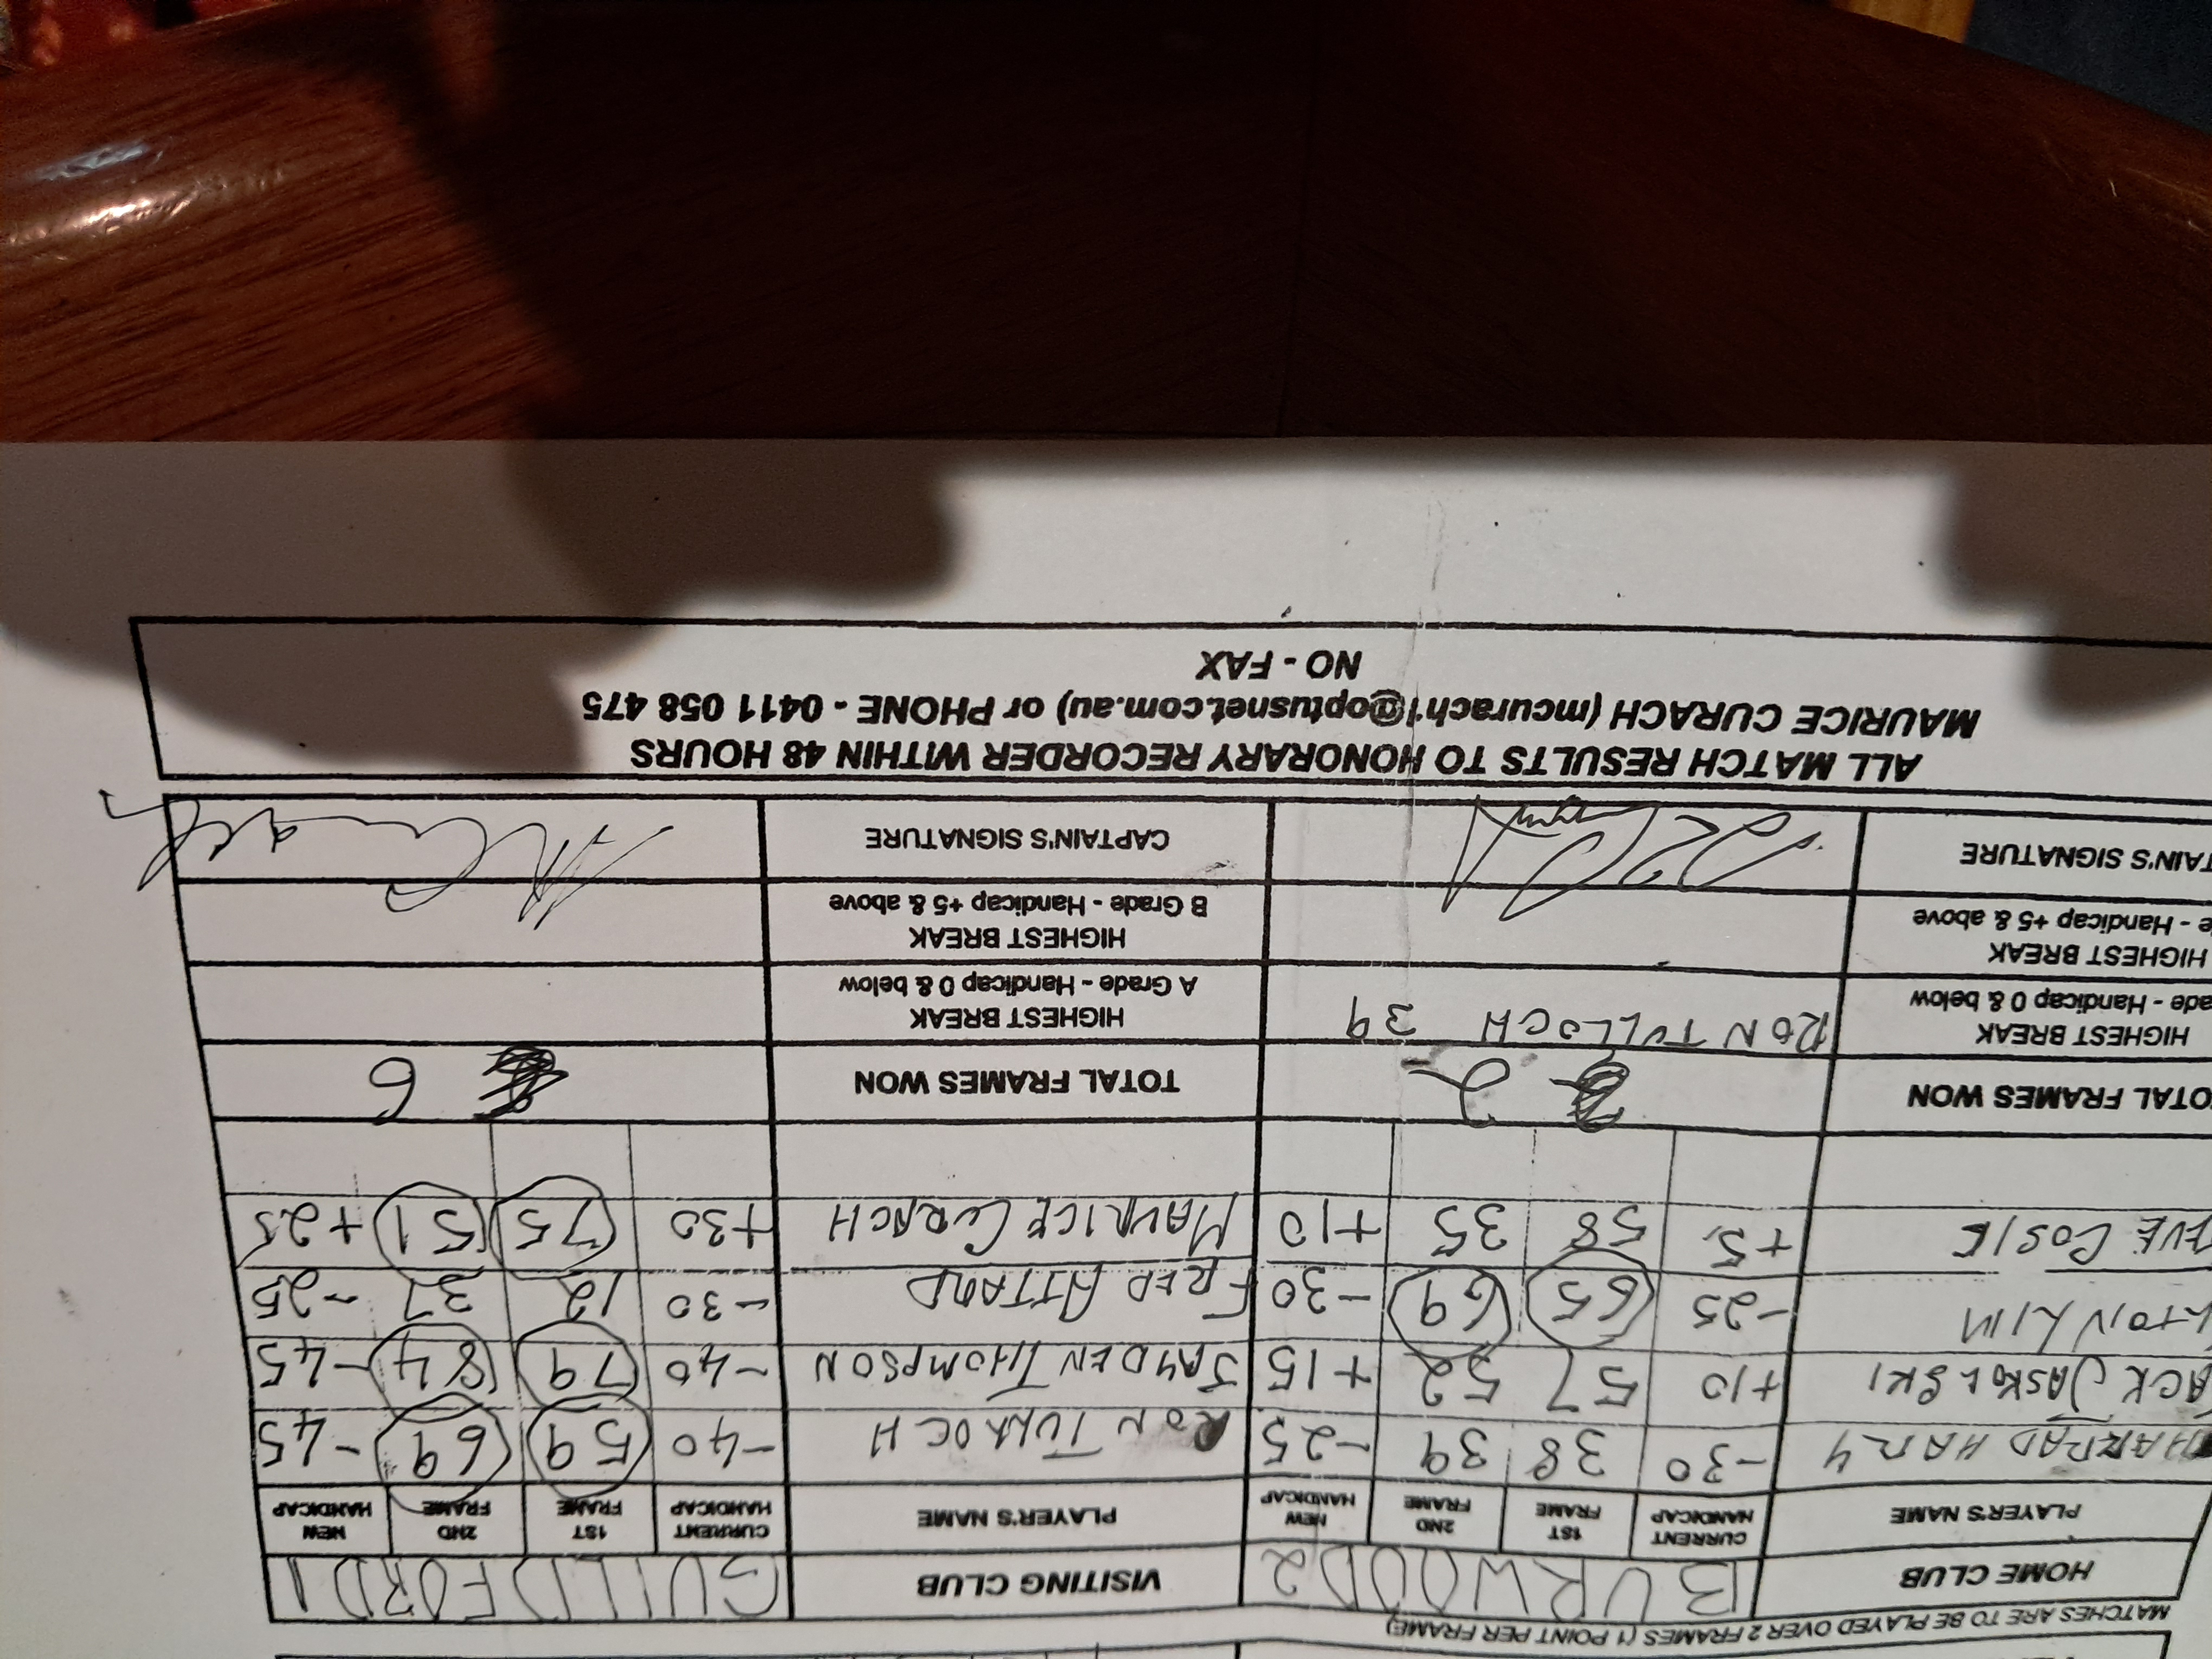 MATCHES ARE TO BE PLAYED OVER 2 FRAMES (1 POINT PER FRAME)
HOME CLUB BURWOOD 2 VISITING CLUB GUILDFORD 1
PLAYER'S NAME CURRENT HANDICAP 1ST FRAME 2ND FRAME NEW HANDICAP PLAYER'S NAME CURRENT HANDICAP 1ST FRAME 2ND FRAME NEW HANDICAP
-30 38 39 -25 RON TULLOCH -40 59 69 -45
ACK JASKOLSKI +10 57 52 +15 JAYDEN THOMPSON -40 79 84 -45
LIM -25 65 69 -30 FRED ATTARD -30 12 37 -25
EVE COSIC +5 58 35 +10 MAURICE CURACH +30 75 51 +25
OTAL FRAMES WON 2 TOTAL FRAMES WON 6
HIGHEST BREAK
ade - Handicap 0 & below RON TULLOCH 39 HIGHEST BREAK
A Grade - Handicap 0 & below
HIGHEST BREAK
e - Handicap +5 & above HIGHEST BREAK
B Grade - Handicap +5 & above
TAIN'S SIGNATURE CAPTAIN'S SIGNATURE
ALL MATCH RESULTS TO HONORARY RECORDER WITHIN 48 HOURS
MAURICE CURACH (mcurach1@optusnet.com.au) or PHONE - 0411 058 475
NO - FAX